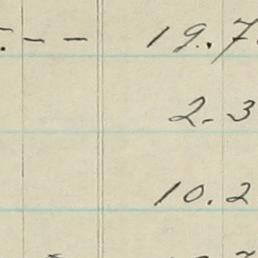 - - 19.7
2.3
10.2